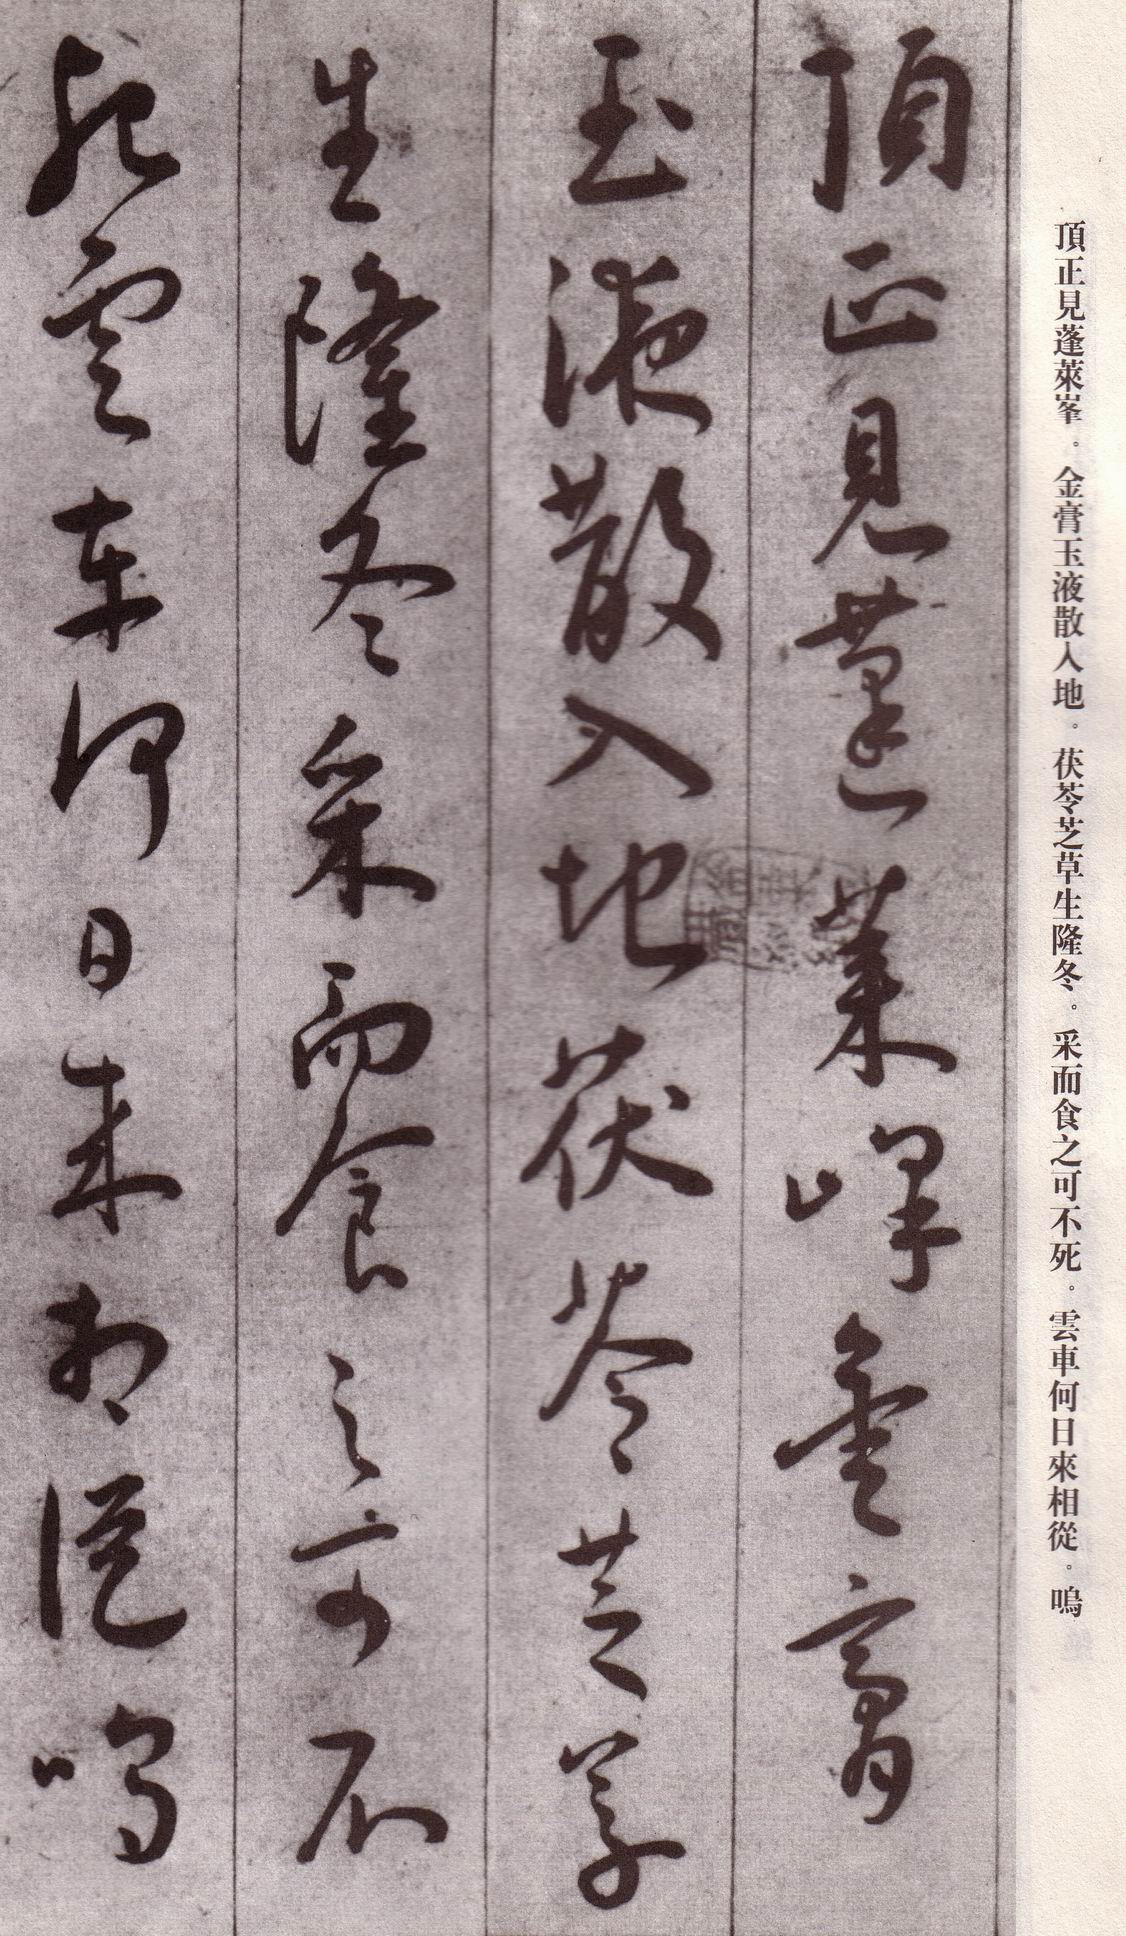 頂正見蓬萊峯。金膏玉液散入地。茯苓芝草生隆冬。采而食之可不死。雲車何日來相從。嗚
頂正見蓬萊峰金膏
玉液散入地茯苓芝草
生隆冬采而食之可不
死雲車何日來相從嗚